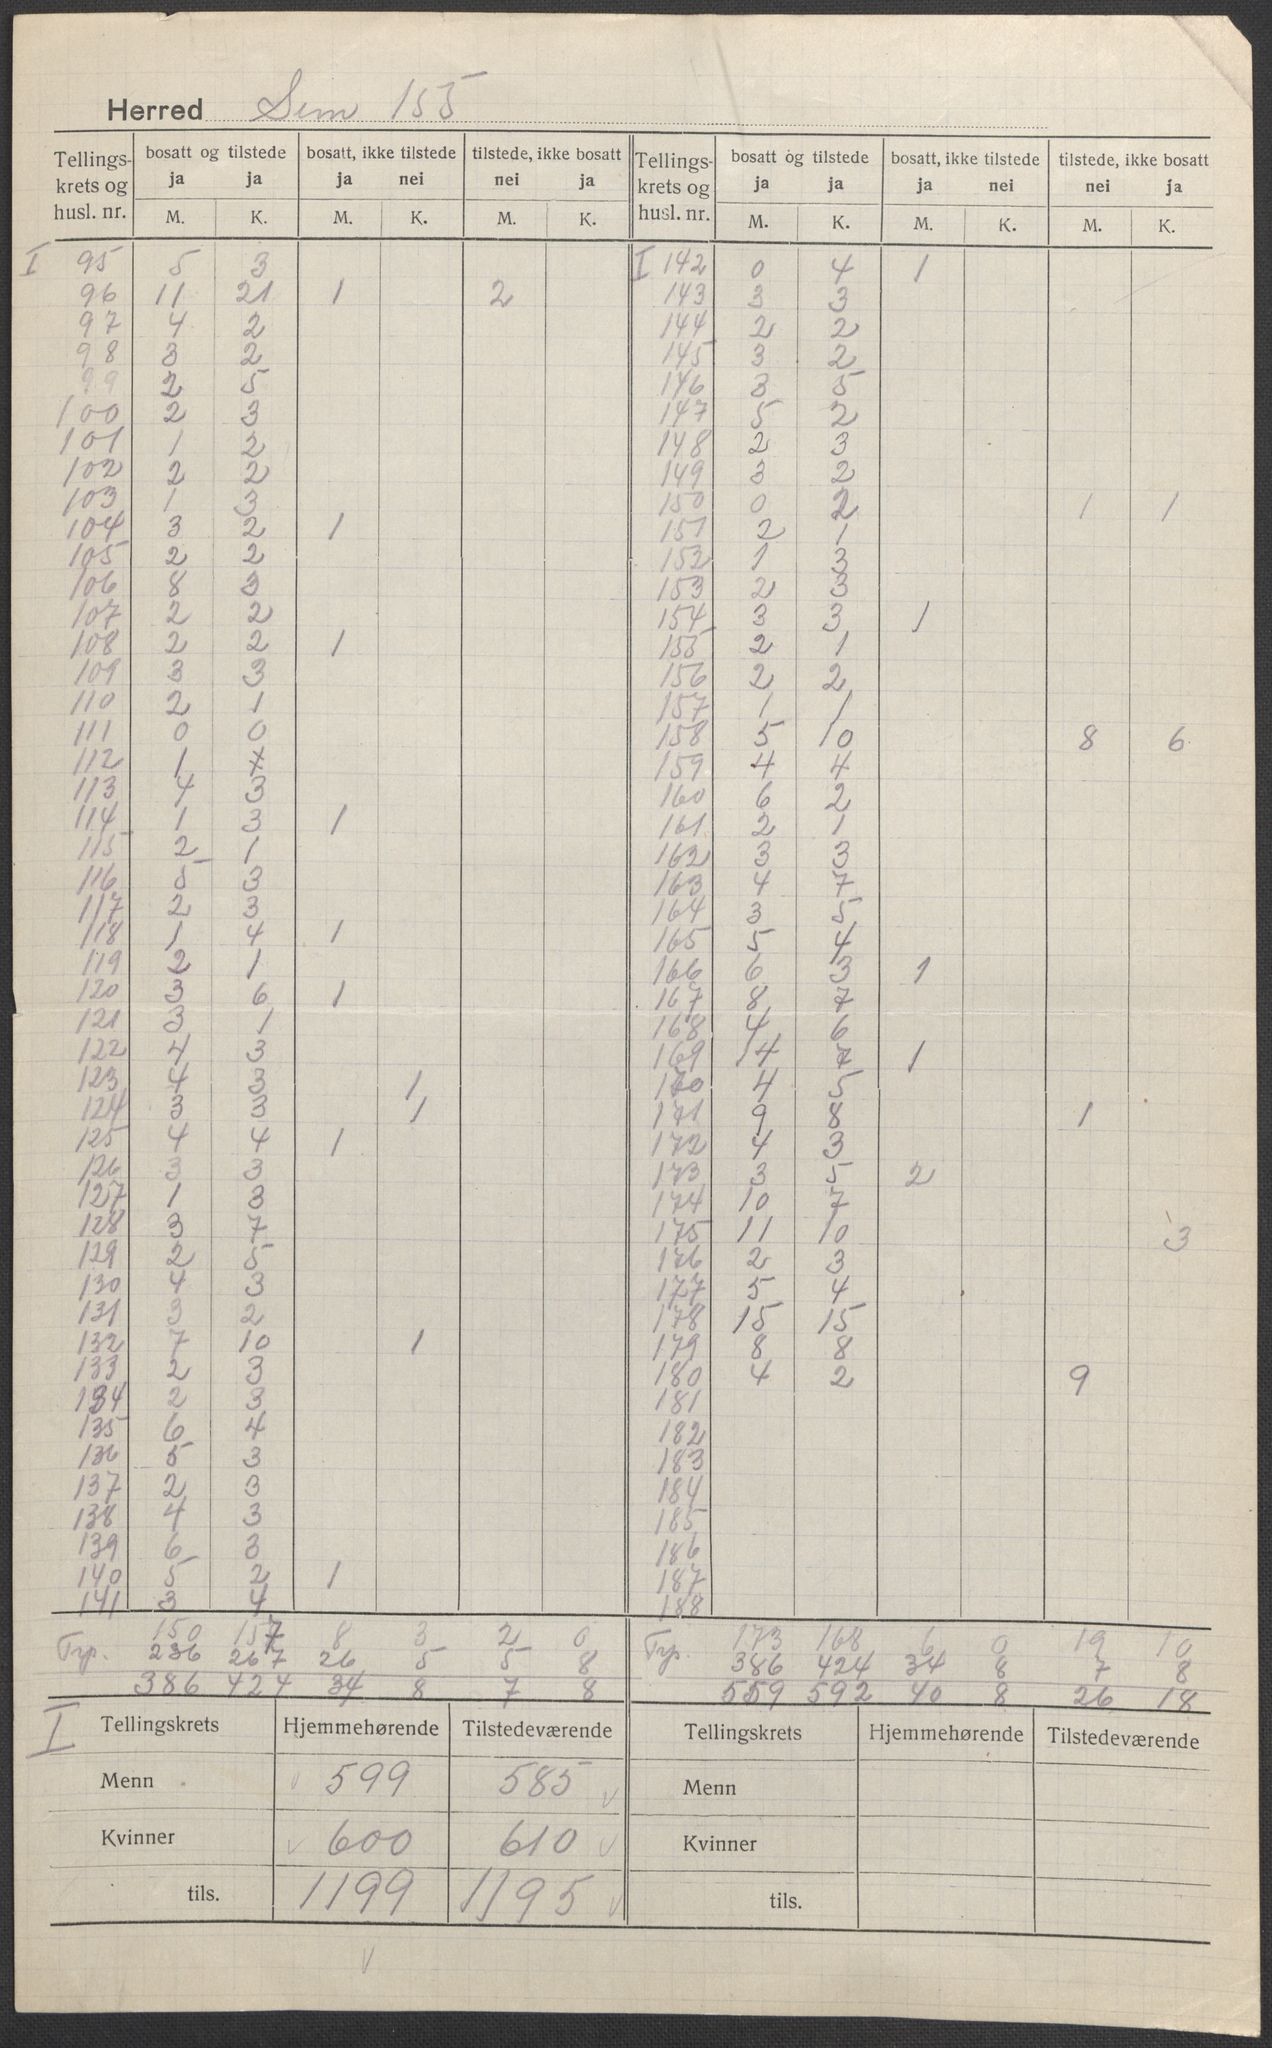 Herred Sem 155
Tellings- krets og husl. nr. | bosatt og tilstede ja ja | bosatt, ikke tilstede ja nei | tilstede, ikke bosatt nei ja | Tellings- krets og husl. nr. | bosatt og tilstede ja ja | bosatt, ikke tilstede ja nei | tilstede, ikke bosatt nei ja
M. K. M. K. M. K. M. K. M. K. M. K.
I 95 5 3 | I 142 0 4 1
96 11 21 1 2 | 143 3 3
97 4 2 | 144 2 2
98 3 2 | 145 3 2
99 2 5 | 146 3 5
100 2 3 | 147 5 2
101 1 2 | 148 2 3
102 2 2 | 149 3 2
103 1 3 | 150 0 2 1 1
104 3 2 1 | 151 2 1
105 2 2 | 152 1 3
106 8 3 | 153 2 3
107 2 2 | 154 3 3 1
108 2 2 1 | 155 2 1
109 3 3 | 156 2 2
110 2 1 | 157 1 1
111 0 0 | 158 5 10 8 6
112 1 | 159 4 4
113 4 3 | 160 6 2
114 1 3 1 | 161 2 1
115 2 1 | 162 3 3
116 5 3 | 163 4 7
117 2 3 | 164 3 5
118 1 4 1 | 165 5 4
119 2 1 | 166 6 3 1
120 3 6 1 | 167 8 7
121 3 1 | 168 4 6
122 4 3 | 169 14 7 1
123 4 3 1 | 170 4 5
124 3 3 1 | 171 9 8 1
125 4 4 1 | 172 4 3
126 3 3 | 173 3 5 2
127 1 3 | 174 10 7
128 3 7 | 175 11 10 3
129 2 5 | 176 2 3
130 4 3 | 177 5 4
131 3 2 | 178 15 15
132 7 10 1 | 179 8 8
133 2 3 | 180 4 2 9
134 2 3 | 181
135 6 4 | 182
136 5 3 | 183
137 2 3 | 184
138 4 3 | 185
139 6 3 | 186
140 5 2 1 | 187
141 3 4 | 188
150 157 8 3 2 0 | 173 168 6 0 19 10
Trp. 236 267 26 5 5 8 | Trp. 386 424 34 8 7 8
386 424 34 8 7 8 | 559 592 40 8 26 18
I Tellingskrets Hjemmehørende Tilstedeværende | Tellingskrets Hjemmehørende Tilstedeværende
Menn 599 585 | Menn
Kvinner 600 610 | Kvinner
tils. 1199 1195 | tils.